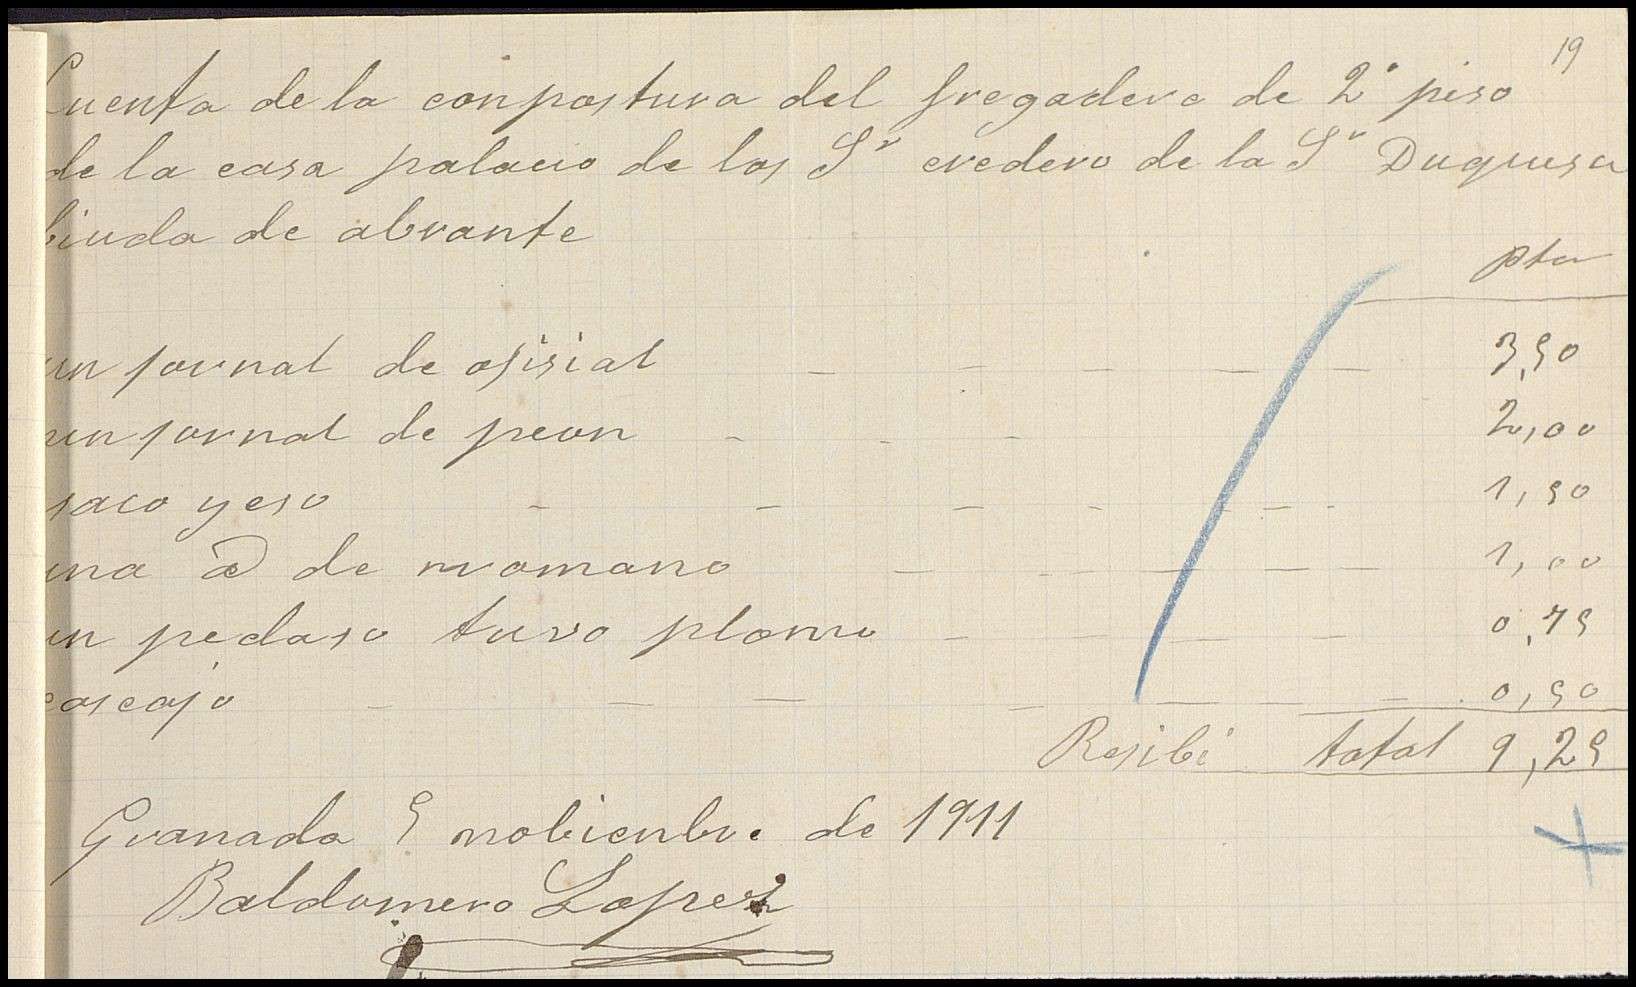 19
Cuenta de la conpostura del fregadero de 2º piso
de la casa palacio de los Sr eredero de la Sr Duquesa
biuda de abrante
pta
un jornal de ofisial 3,50
un jornal de peon 2,00
saco yeso 1,50
una @ de rromano 1,00
un pedaso tuvo plomo 0,75
cascajo 0,50
Resibi total 9,25
Granada 5 nobienbre de 1911
Baldomero Lopez